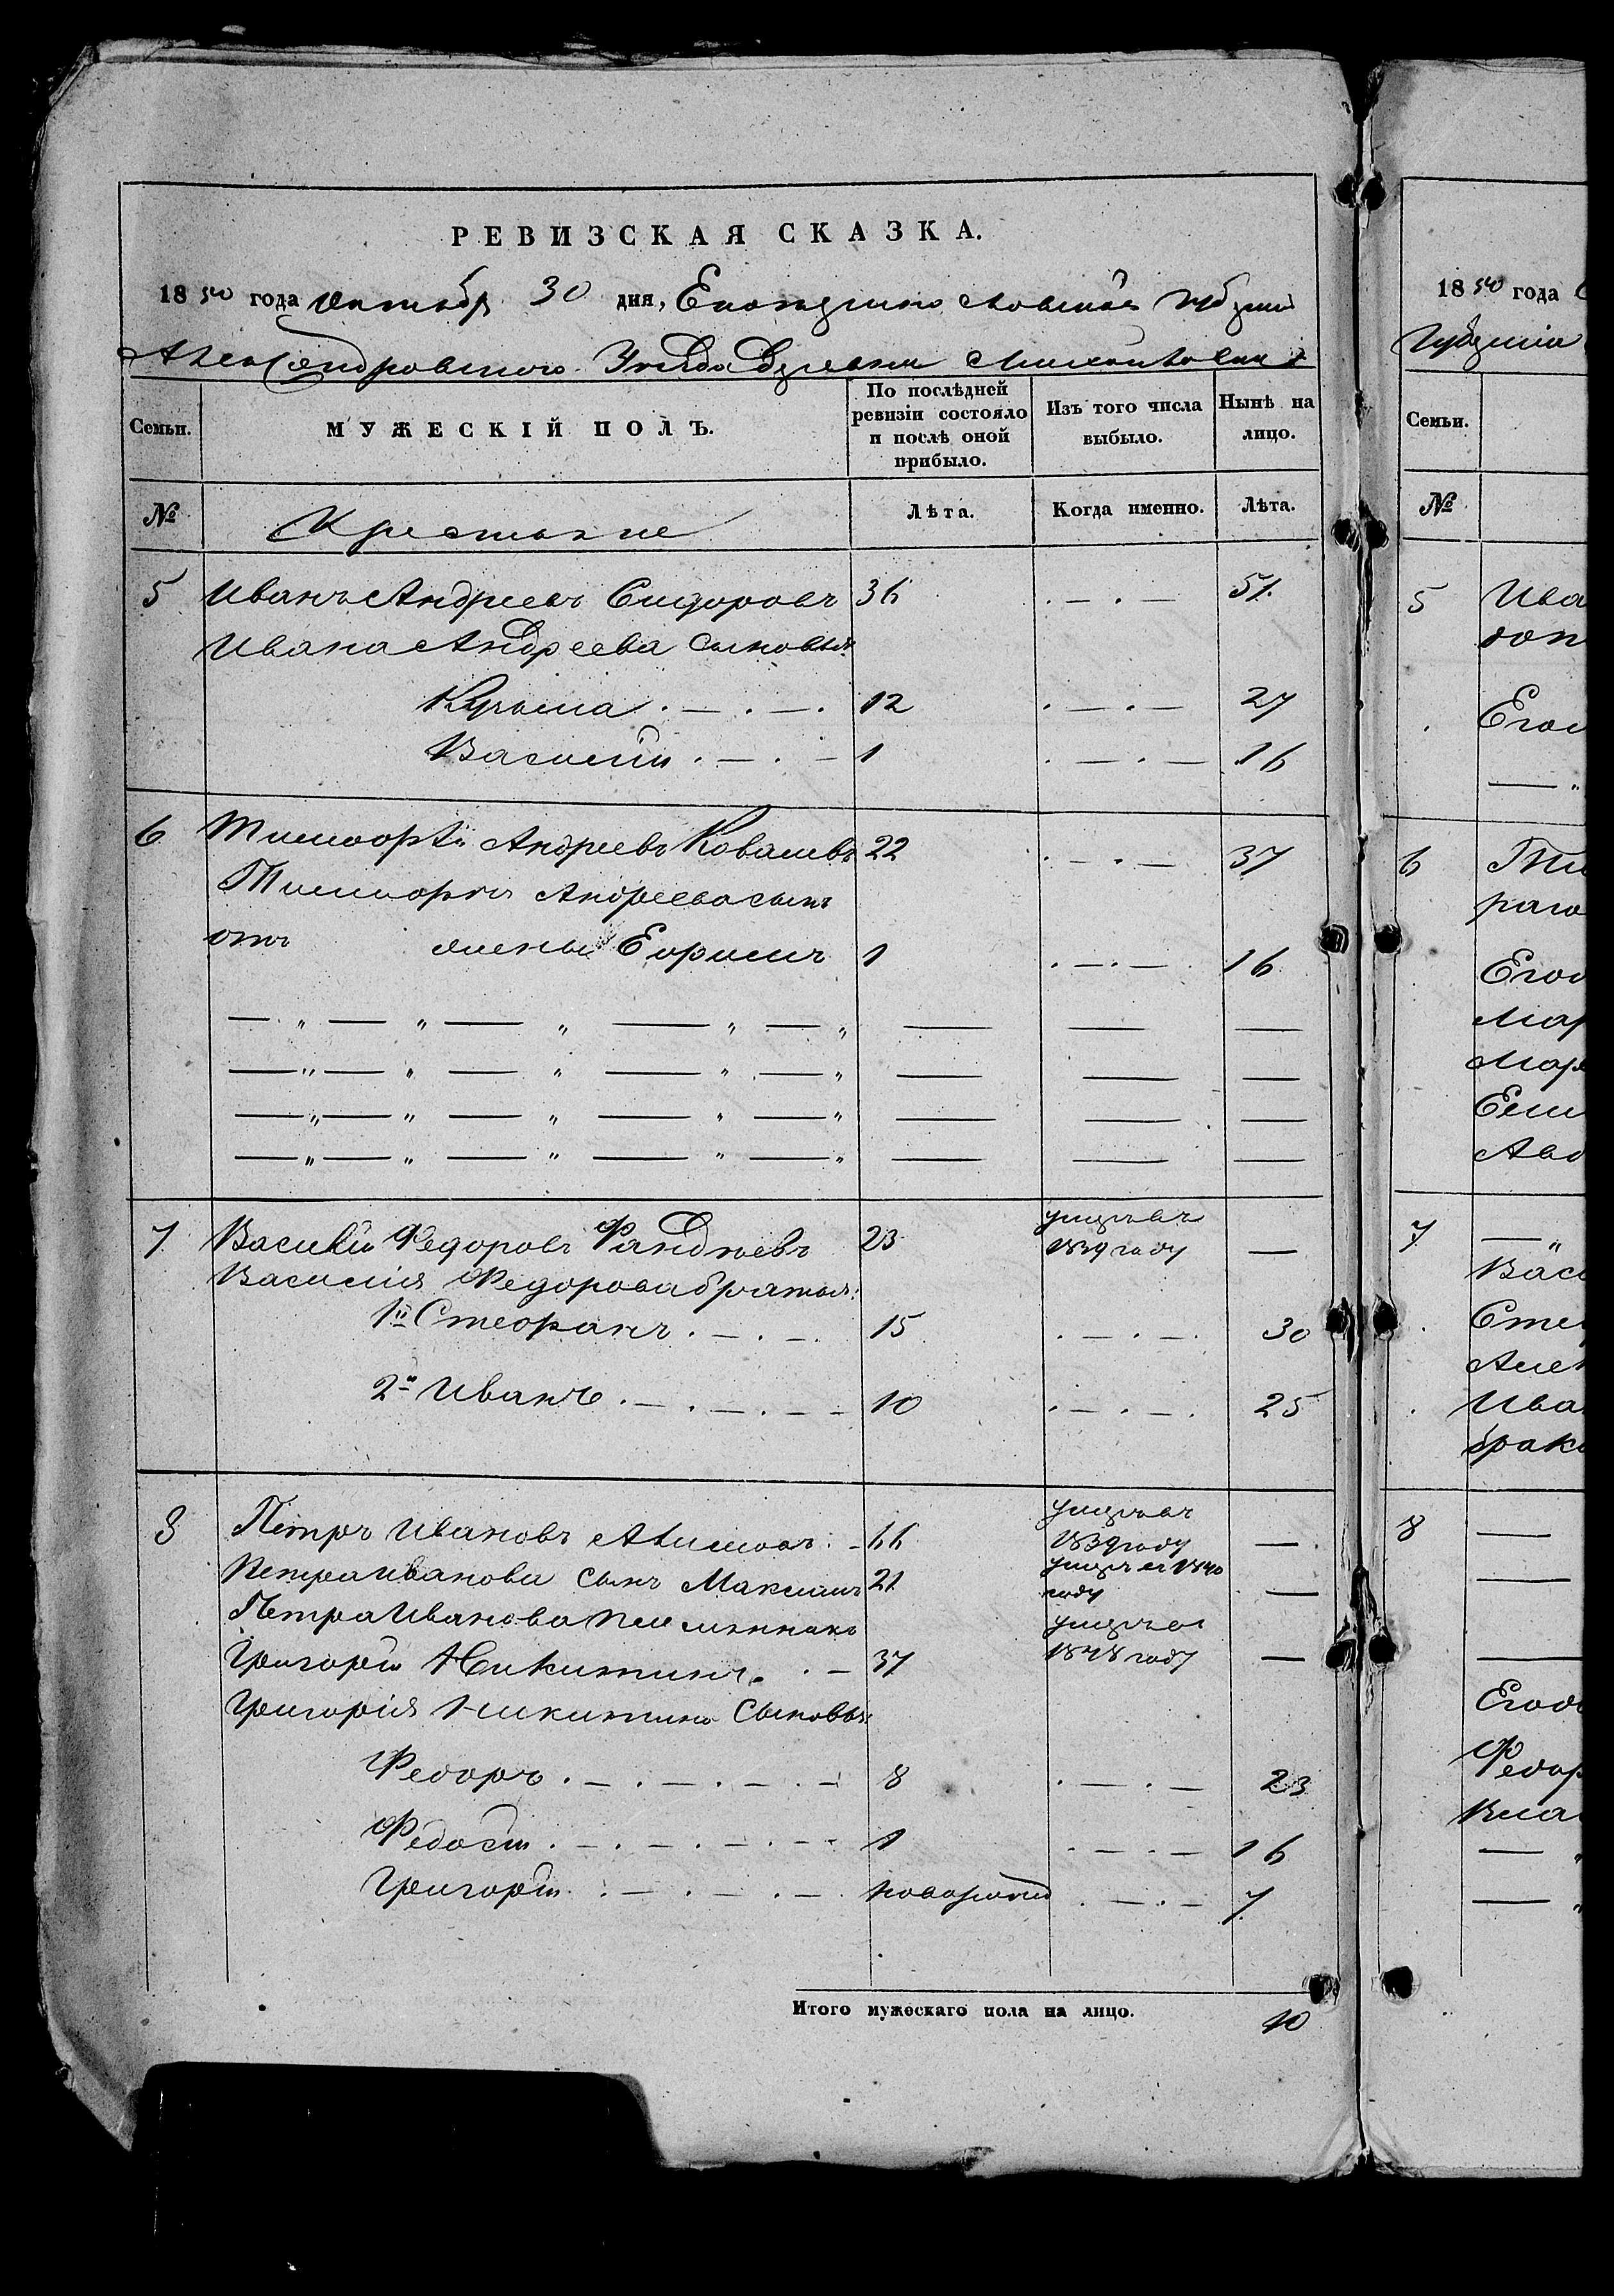 РЕВИЗСКАЯ СКАЗКА.
1850 года Октября 30 дня, Екатеринославской Губернии
Александровского Уезда Деревни
Семьи.
МУЖЕСКІЙ ПОЛЪ.
По послѣдней ревизіи состояло и послѣ оной прибыло.
Изъ того числа выбыло.
Нынѣ на лицо.
№ Крестьяне Лѣта. Когда именно. Лѣта.
5 Иванъ Андреевъ Сидоровъ 36 51.
Ивана Андреева сыновья
Кузьма 12 27
Василий 1 16
6 Тимофѣй Андреевъ Ковалевъ 22 37
Тимофея Андреева сынъ
отъ жены Ефимъ 1 16
7 Василій Федоровъ 23 умеръ въ 1839 году —
Василия Федорова братья:
1й Стефанъ 15 30
2й Иванъ 10 25
8 Петръ Ивановъ 66 умеръ въ 1839 году —
Петра Иванова сынъ Максимъ 21 умеръ въ 1840 году —
Петра Иванова племянникъ
Григорій Никитинъ 37 умеръ въ 1848 году —
Григорія Никитина Сыновья
Федоръ 8 23
Федосій 1 16
Григорій новорожд 7
Итого мужескаго пола на лицо. 10
1850 года
Губернии
Семьи.
№
5 Ива
Егo
6 Ти
Его
Мар
Мар
Авд
7
Васи
Сте
Ива
брака
8
Его
Федор